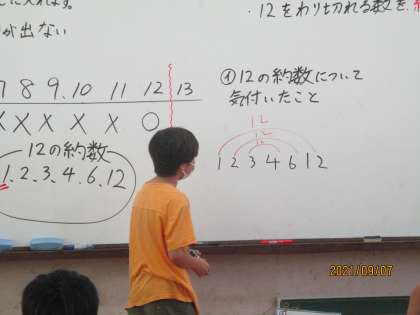 に入れよう。
が出ない
・12をわり切れる数を、
7 8 9 10 11 12 13
X X X X X ○
12の約数
1、2、3、4、6、12
④12の約数について
気付いたこと
12
12
12
1 2 3 4 6 12
2021/09/07